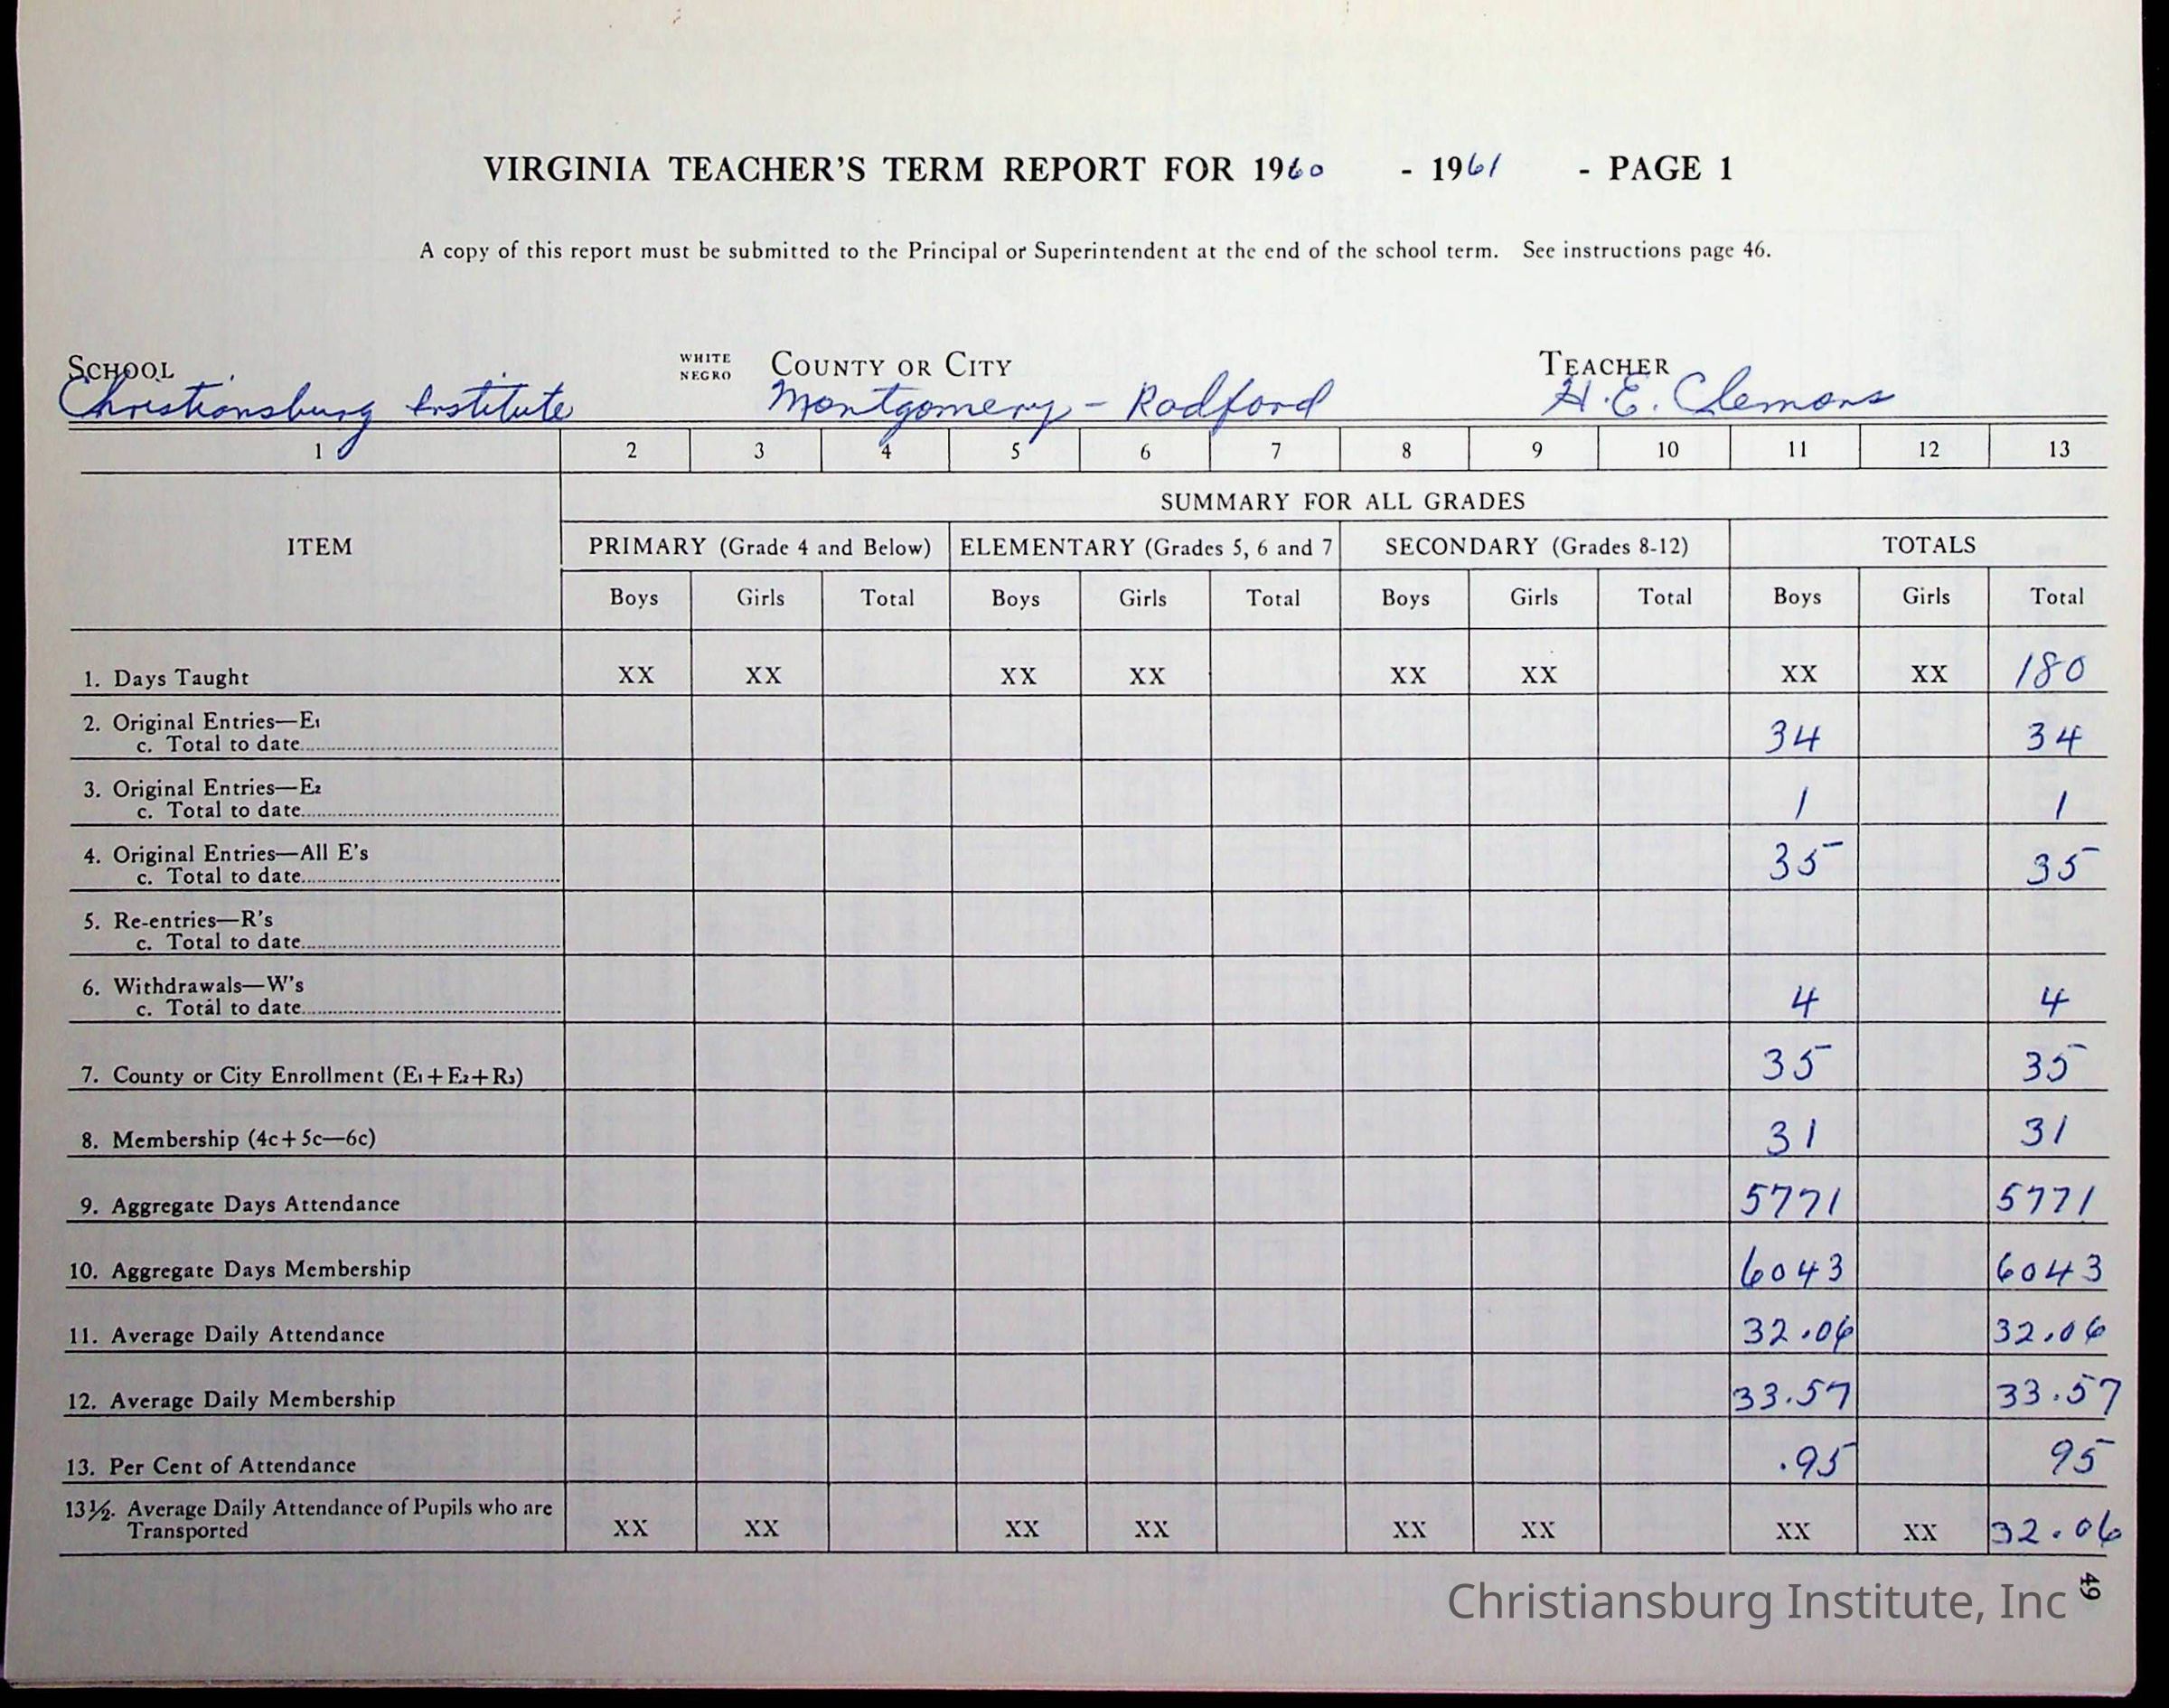 VIRGINIA TEACHER'S TERM REPORT FOR 1960 - 1961 - PAGE 1
A copy of this report must be submitted to the Principal or Superintendent at the end of the school term. See instructions page 46.
SCHOOL WHITE NEGRO COUNTY OR CITY TEACHER
Christiansburg Institute Montgomery - Radford H. E. Clemons
1 2 3 4 5 6 7 8 9 10 11 12 13
SUMMARY FOR ALL GRADES
ITEM PRIMARY (Grade 4 and Below) ELEMENTARY (Grades 5, 6 and 7 SECONDARY (Grades 8-12) TOTALS
Boys Girls Total Boys Girls Total Boys Girls Total Boys Girls Total
1. Days Taught XX XX XX XX XX XX XX XX 180
2. Original Entries—E1
c. Total to date 34 34
3. Original Entries—E2
c. Total to date 1 1
4. Original Entries—All E's
c. Total to date 35 35
5. Re-entries—R's
c. Total to date
6. Withdrawals—W's
c. Total to date 4 4
7. County or City Enrollment (E1+E2+R3) 35 35
8. Membership (4c+5c—6c) 31 31
9. Aggregate Days Attendance 5771 5771
10. Aggregate Days Membership 6043 6043
11. Average Daily Attendance 32.06 32.06
12. Average Daily Membership 33.57 33.57
13. Per Cent of Attendance .95 95
13½. Average Daily Attendance of Pupils who are
Transported XX XX XX XX XX XX XX XX 32.06
49
Christiansburg Institute, Inc